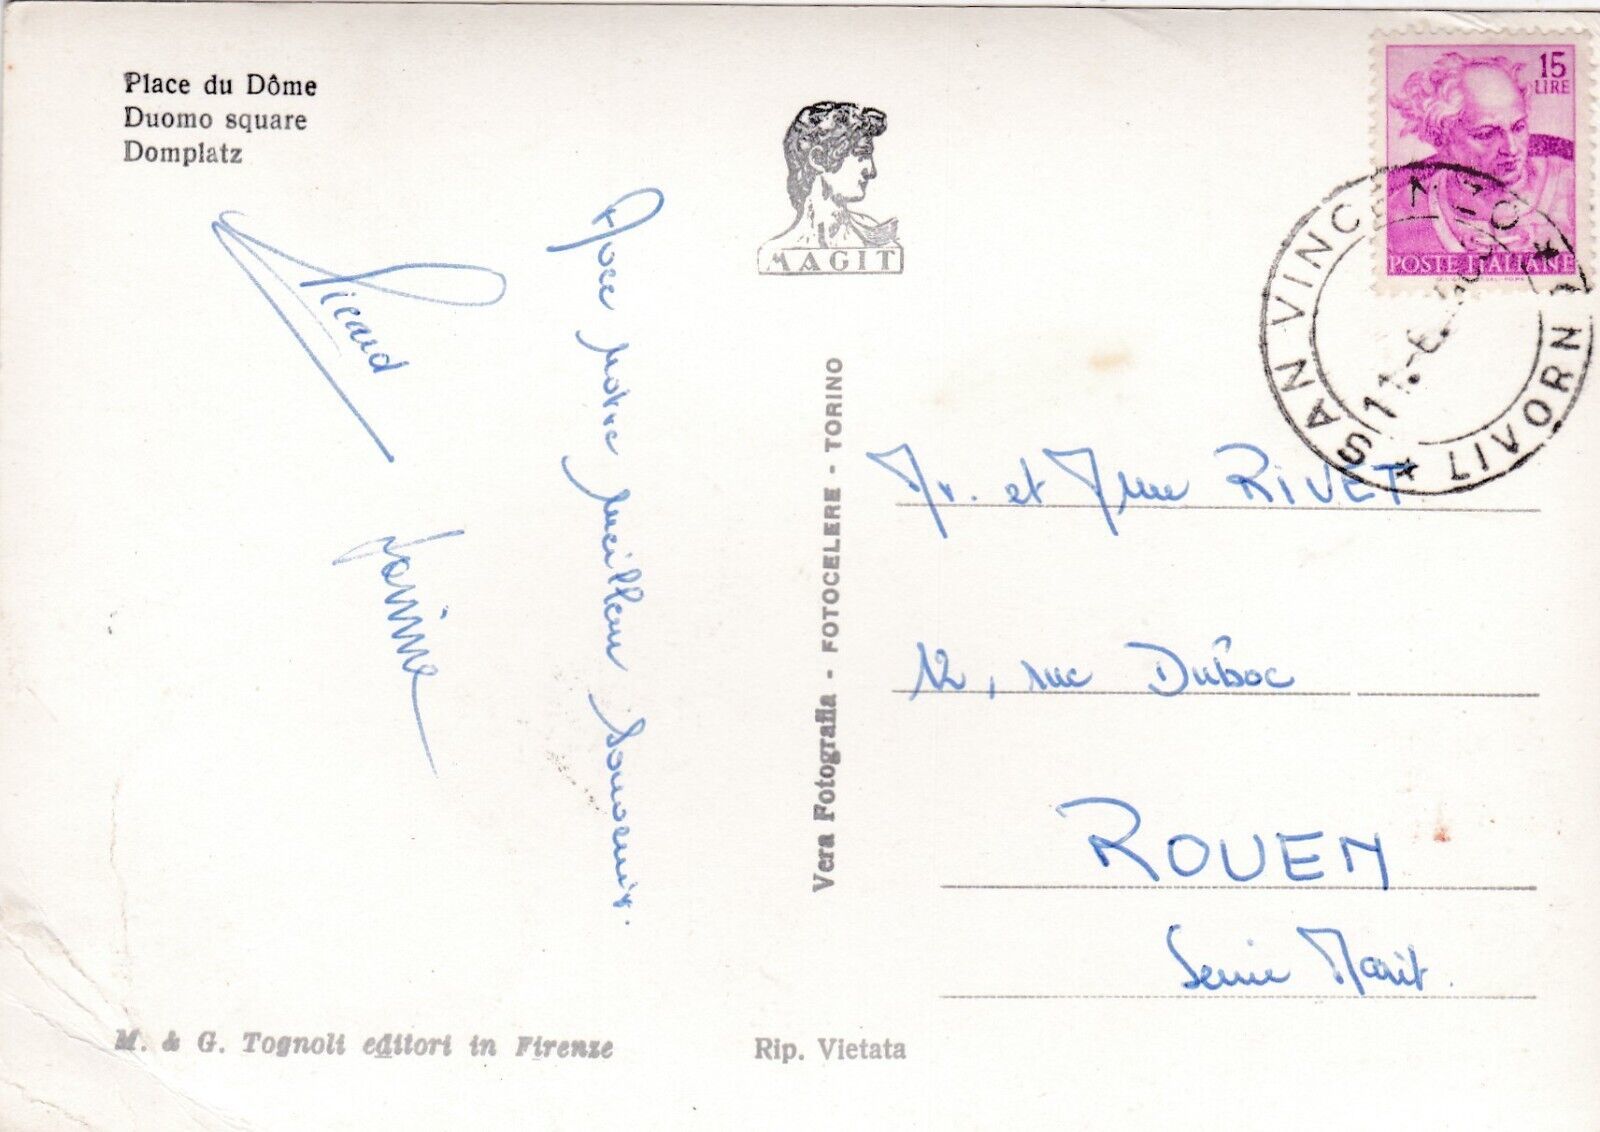 Place du Dôme
Duomo square
Domplatz
MAGIT
15
LIRE
POSTE ITALIANE
SAN VINCENZO * LIVORNO *
11.-6.
Avec notre meilleur souvenir.
Picard
Janine
Vera Fotografia - FOTOCELERE - TORINO
Mr. et Mme RIVET
12, rue Duboc
ROUEN
Seine Marit.
M. & G. Tognoli editori in Firenze
Rip. Vietata